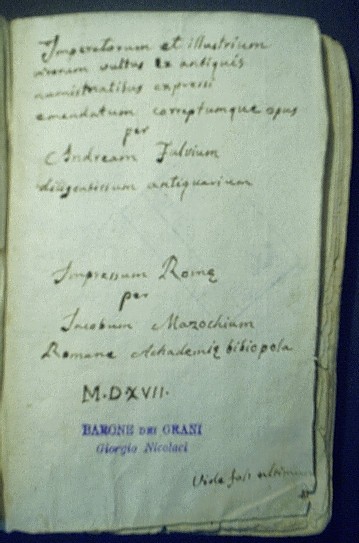 Imperatorum et illustrium
virorum vultus ex antiquis
numismatibus expressi
emendatum correptumque opus
per
Andream Fulvium
diligentissum antiquarium
Impressum Romę
per
Jacobum Mazochium
Romane Achademię bibiopola
M.D.XVII.
BARONE DEI GRANI
Giorgio Nicolaci
Vide fol. ultimum